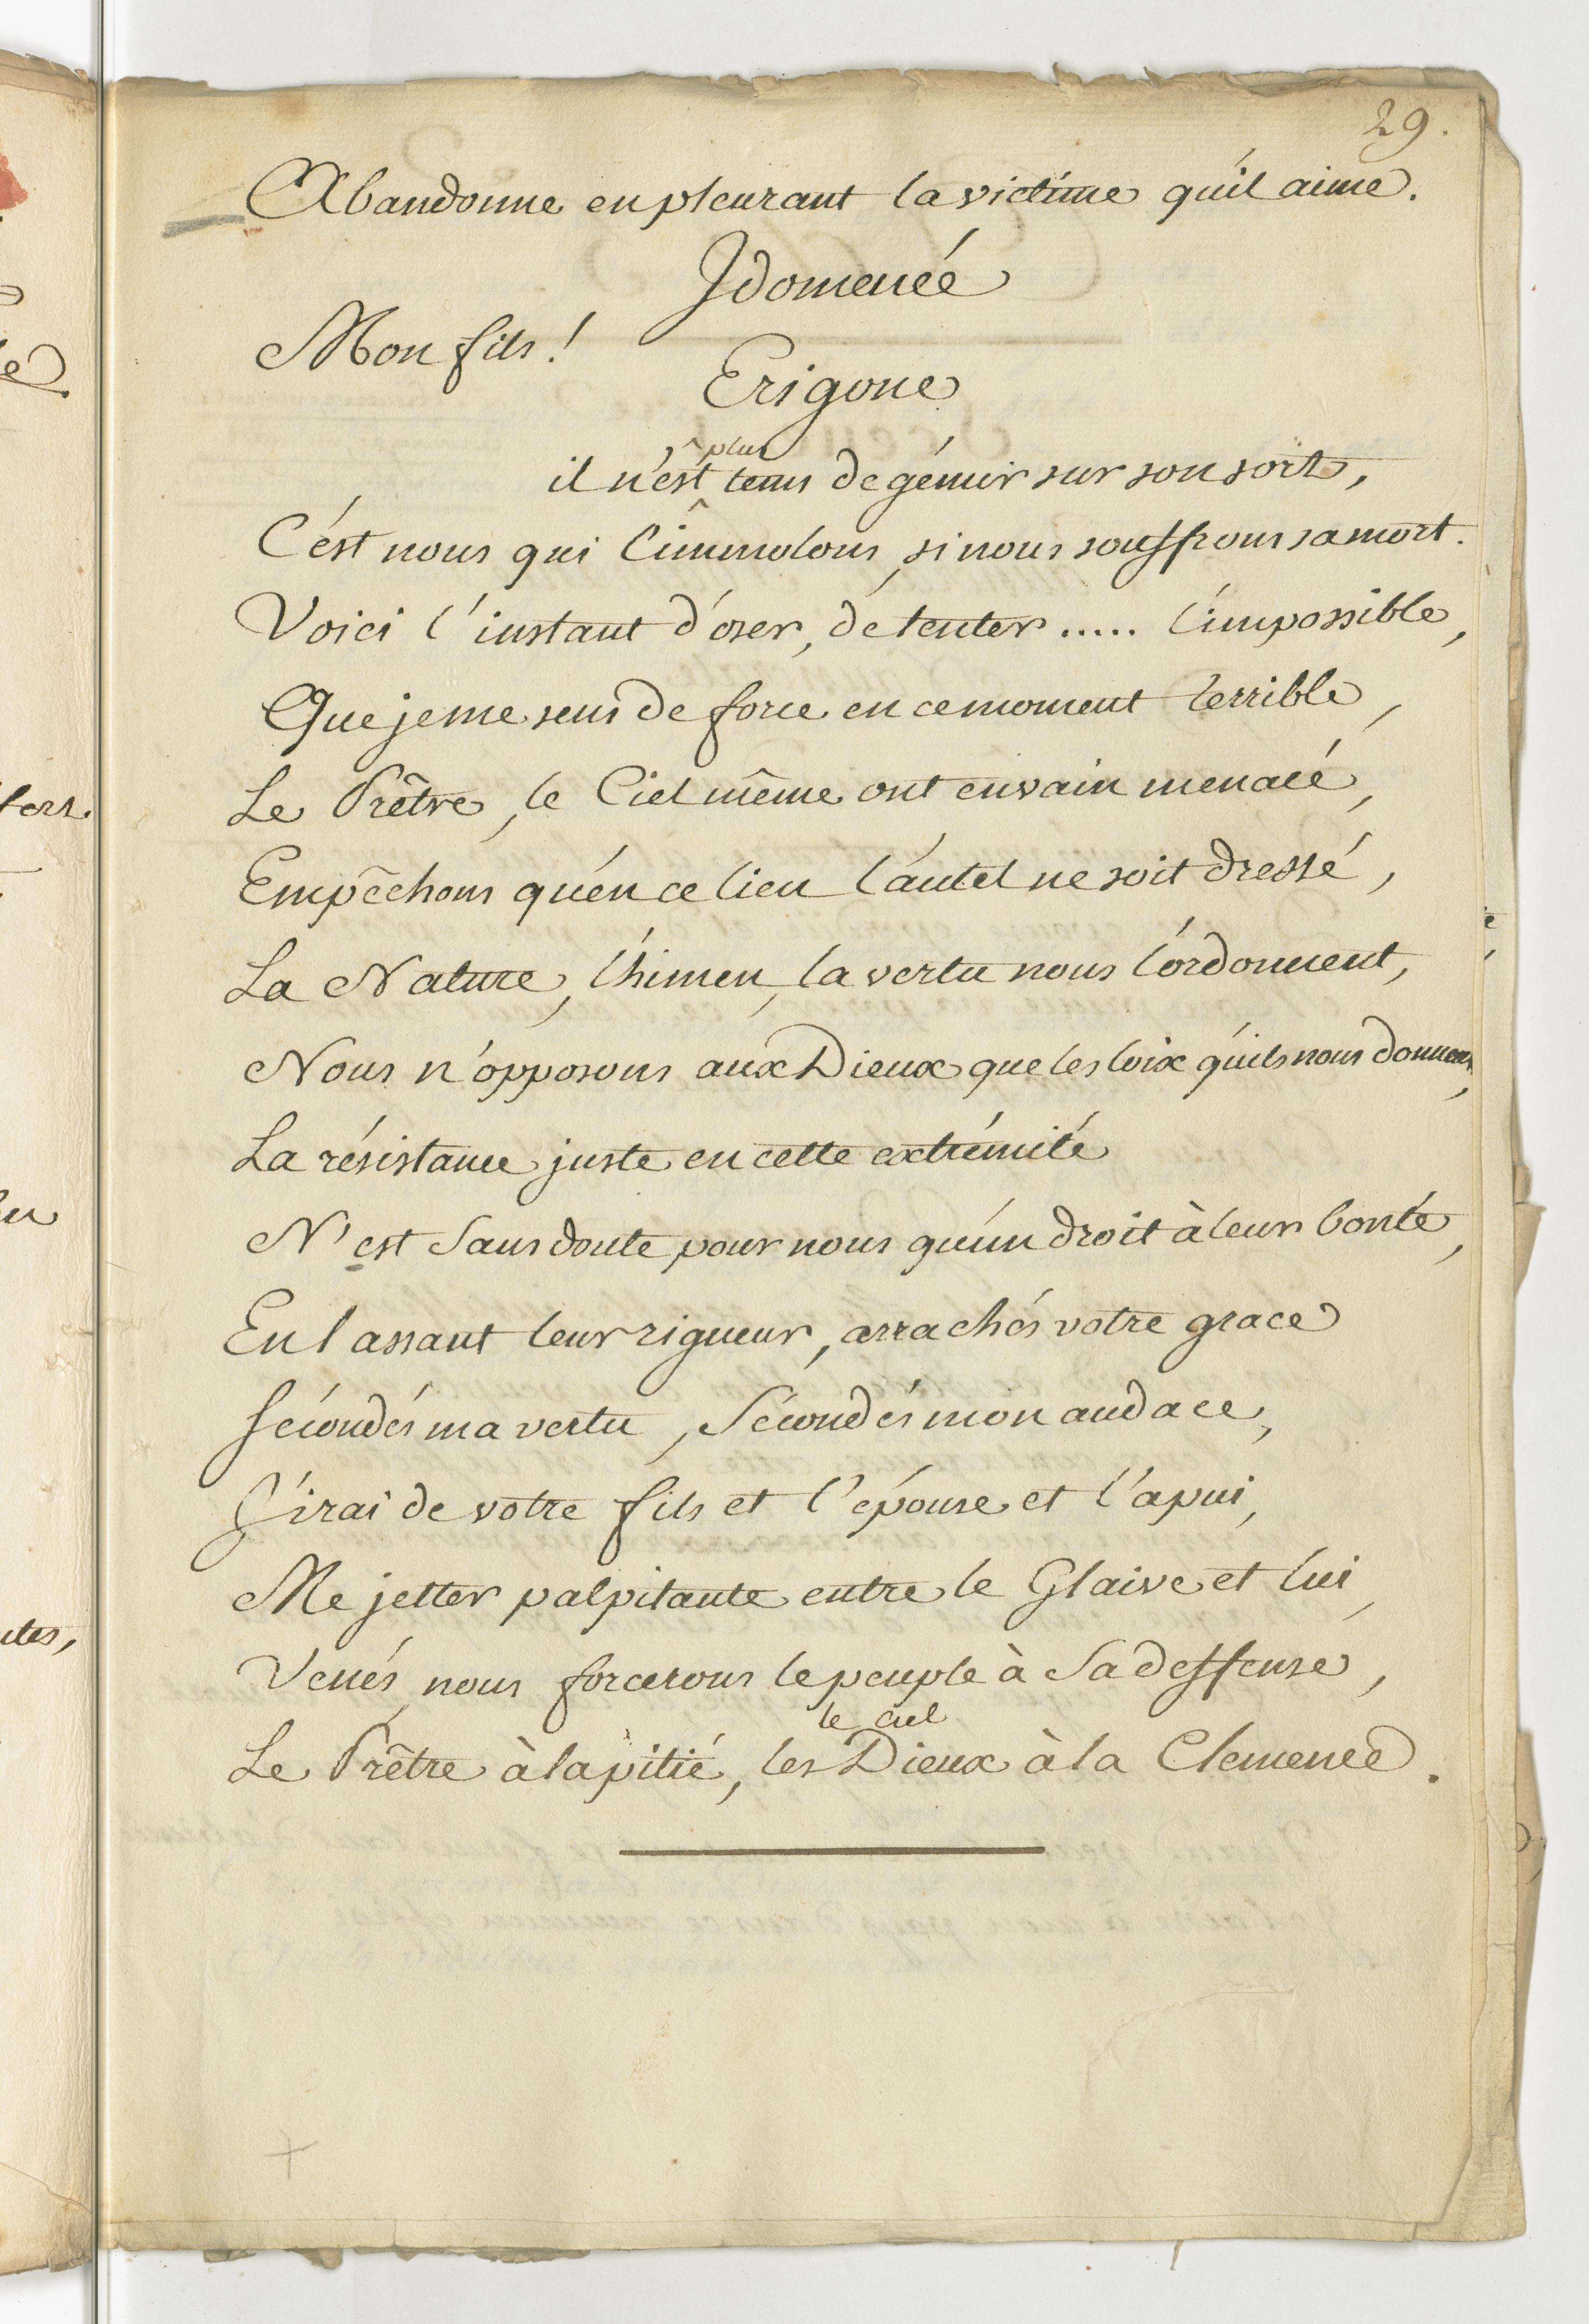 29.
Abandonne en pleurant la victime qu'il aime.
Idomenéé
Mon fils!
Erigone
plus
il n'est tems de gémir sur son sort,
C'est nous qui l'immolons, si nous souffrons sa mort.
Voici l'instant d'oser, de tenter ..... l'impossible,
Que je me sens de force en ce moment terrible,
Le Prêtre, le Ciel même ont envain menacé,
Empêchons qu'en ce lieu l'autel ne soit dressé,
La Nature, l'himen, la vertu nous l'ordonnent,
Nous n'opposons aux Dieux que les loix qu'ils nous donnent,
La résistance juste en cette extrémité
N'est sans doute pour nous qu'un droit à leur bonté,
En lassant leur rigueur, arrachés votre grace
Sécondés ma vertu, Sécondés mon audace,
J'irai de votre fils et l'épouse et l'apui,
Me jetter palpitante entre le Glaive et lui,
Venés, nous forcerons le peuple à sa deffense,
le ciel
Le Prêtre à la pitié, les Dieux à la Clemence.
fort.
utes,